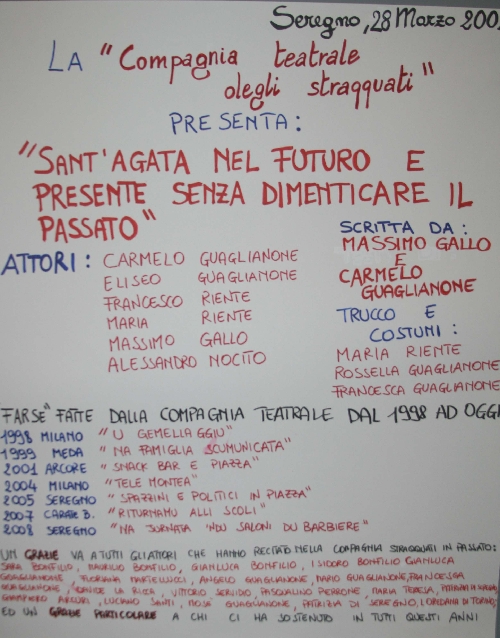 Seregno, 28 Marzo 200
LA "Compagnia teatrale
degli straqquati"
PRESENTA:
"SANT'AGATA NEL FUTURO E
PRESENTE SENZA DIMENTICARE IL
PASSATO"
ATTORI: CARMELO GUAGLIANONE
ELISEO GUAGLIANONE
FRANCESCO RIENTE
MARIA RIENTE
MASSIMO GALLO
ALESSANDRO NOCITO
SCRITTA DA:
MASSIMO GALLO
E
CARMELO
GUAGLIANONE
TRUCCO E
COSTUMI:
MARIA RIENTE
ROSSELLA GUAGLIANONE
FRANCESCA GUAGLIANONE
"FARSE" FATTE DALLA COMPAGNIA TEATRALE DAL 1998 AD OGGI
1998 MILANO "U GEMELLA GGIU"
1999 MEDA "NA FAMIGLIA SCUMUNICATA"
2001 ARCORE "SNACK BAR E PIAZZA"
2004 MILANO "TELE MONTEA"
2005 SEREGNO "SPAZZINI E POLITICI IN PIAZZA"
2007 CARATE B. "RITURNAMU ALLI SCOLI"
2008 SEREGNO "NA JURNATA 'NDU SALONI DU BARBIERE"
UN GRAZIE VA A TUTTI GLI ATTORI CHE HANNO RECITATO NELLA COMPAGNIA STRAQQUATI IN PASSATO:
SARA BONFILIO, MAURILIO BONFILIO, GIANLUCA BONFILIO, ISIDORO BONFILIO GIANLUCA
GUAGLIANONE, FLORIANA MARTELLUCCI, ANGELO GUAGLIANONE, MARIO GUAGLIANONE, FRANCESCA
GUAGLIANONE, DAVIDE LA RICCA, VITTORIO SERVIDIO, PASQUALINO PERRONE, MARIA TERESA,
GIAMPIERO ARCURI, LUCIANO SANTI, ROSA GUAGLIANONE, PATRIZIA DI SEREGNO, LOREDANA DI TORINO
ED UN GRAZIE PARTICOLARE A CHI CI HA SOSTENUTO IN TUTTI QUESTI ANNI